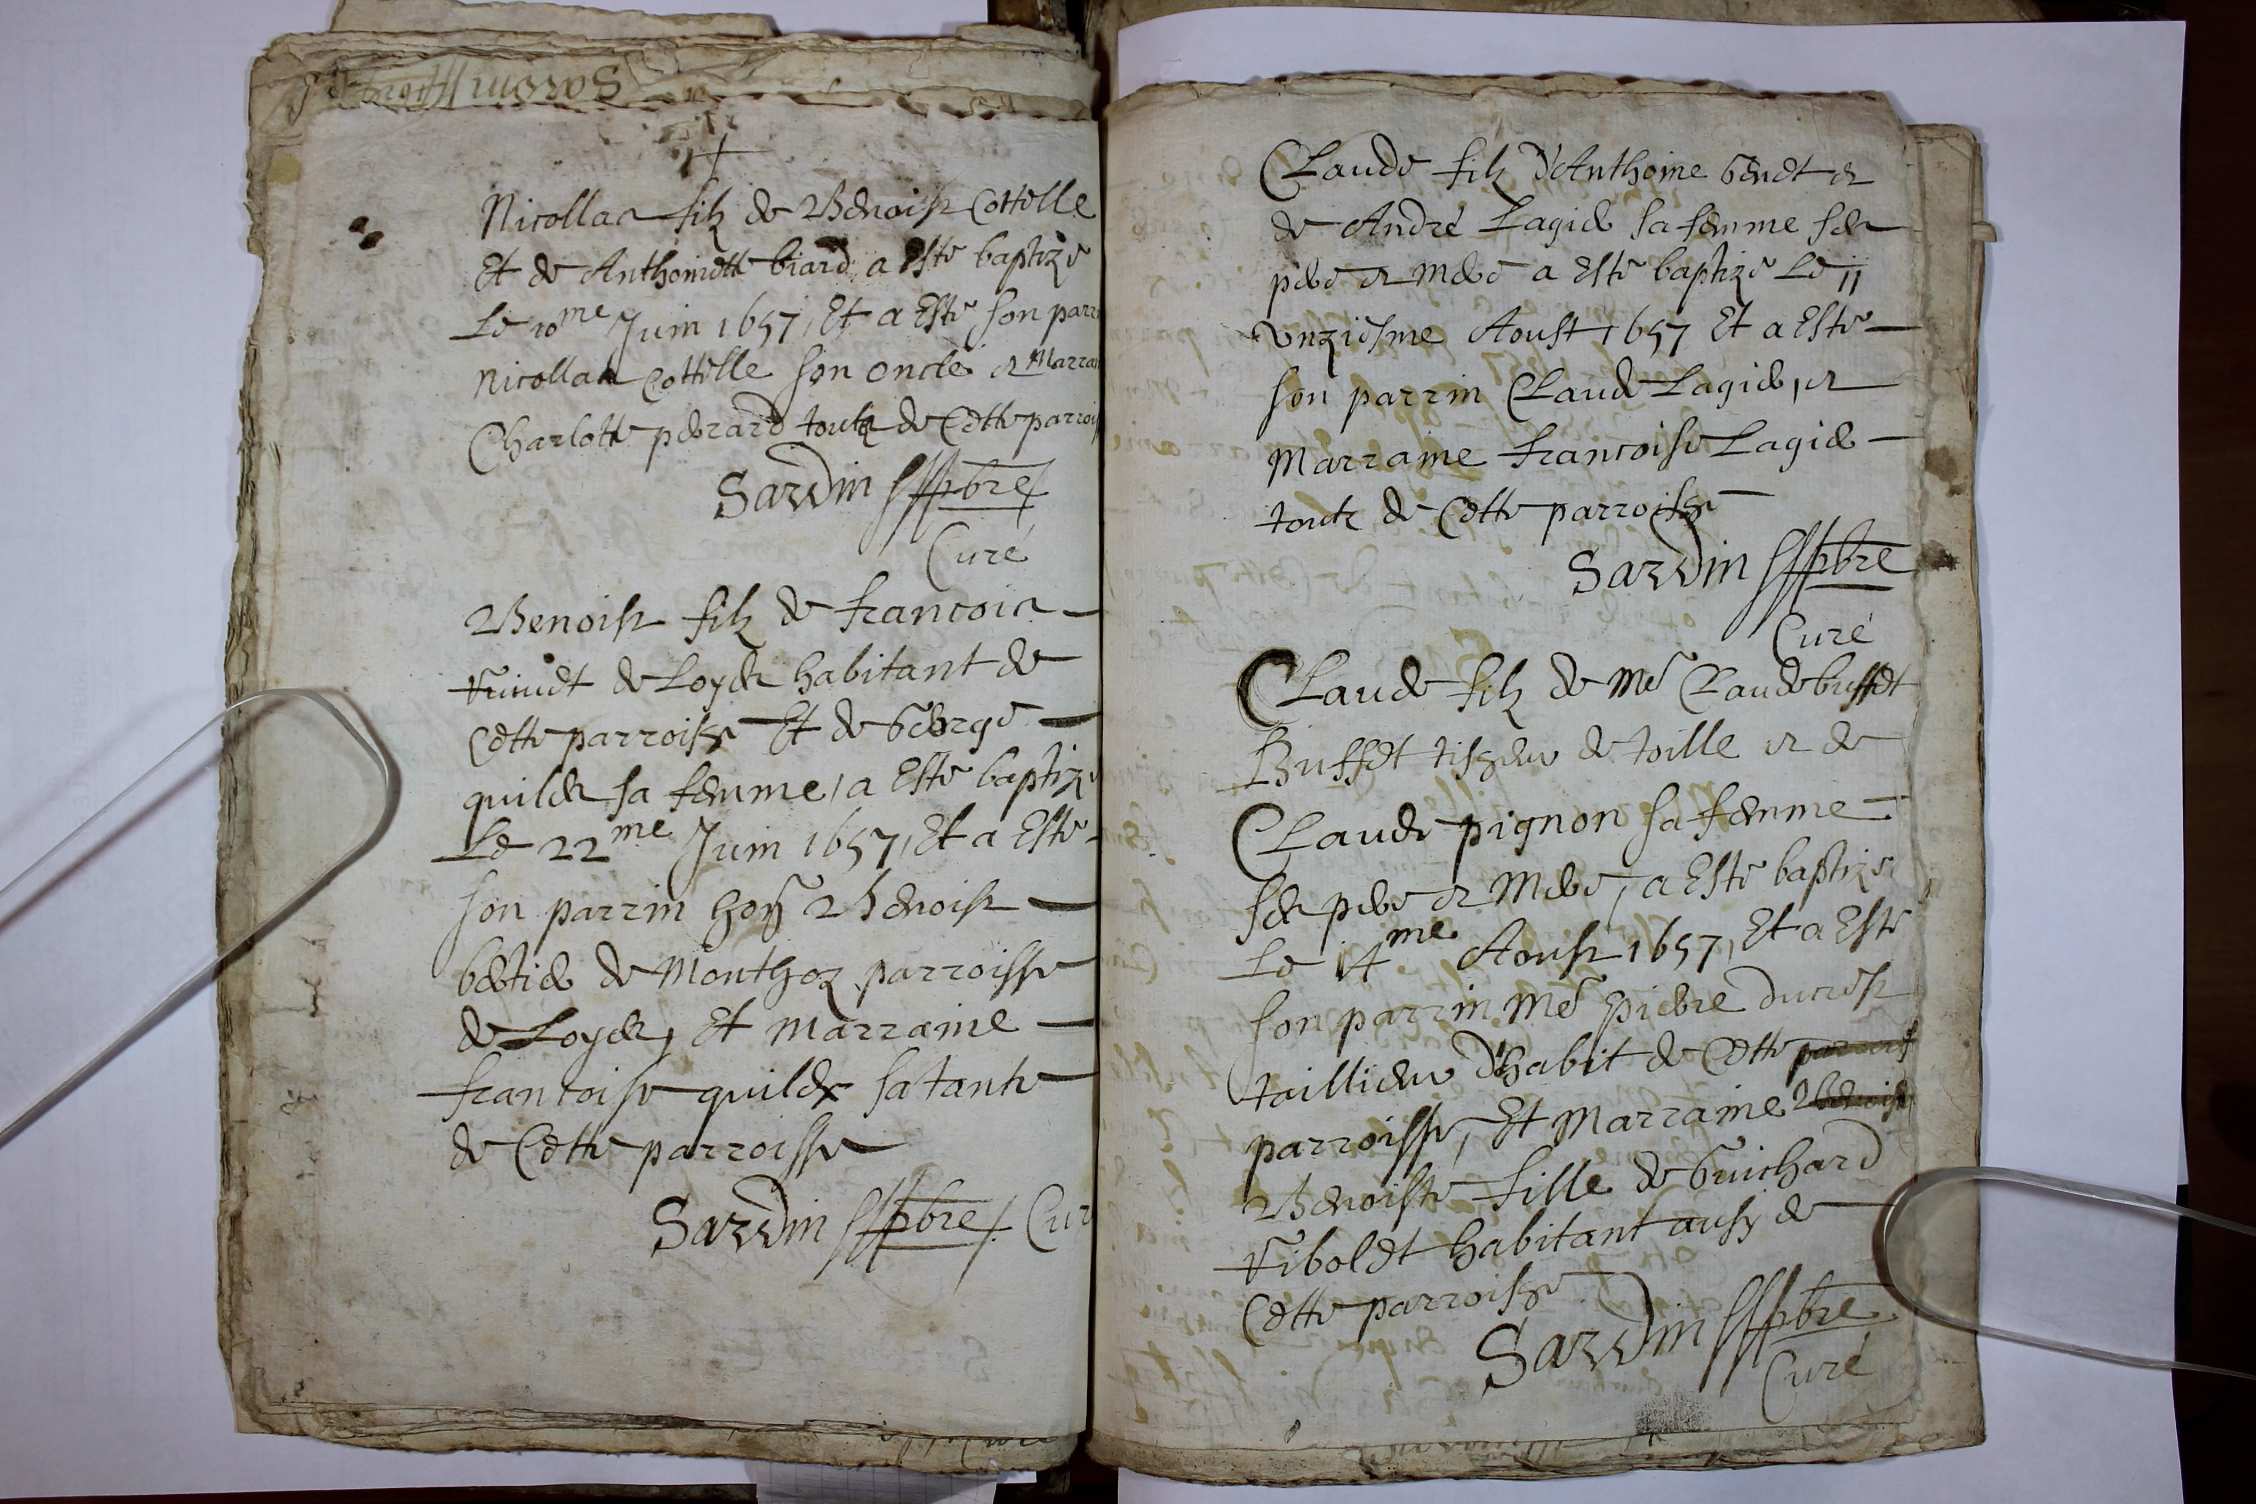 Nicollas filz de Benoist Cottelle
Et de Anthoinette biard a Esté baptizé
Le 10me Juin 1657, Et a Esté son parr
Nicollas Cottelle son oncle et Marra
Charlotte perrard toutz de Cette parrois
Sardin pbre
Curé
Benoist filz de francois
de Loyes habitant de
Cette parroisse Et de George
quilet sa femme, a Esté baptizé
Le 22me Juin 1657, Et a Esté
son parrin hon Benoist
de Monthoz parroisse
de Loyes, Et Marraine
francoise quilet sa tante
de Cette parroisse
Sardin pbre Cur
Claude filz d'Anthoine et
de André Lagier sa femme ses
pere et Mere a Esté baptizé Le 11
unziesme Aoust 1657 Et a Esté
son parrin Claude Lagier, et
Marraine francoise Lagier
toutz de Cette parroisse
Sardin pbre
Curé
Claude filz de Me Claude buffet
Buffet tisseur de toille et de
Claude pignon sa femme
ses pere et Mere, a Esté baptizé
Le 14me Aoust 1657, Et a Esté
son parrin Me pierre ducrest
tailleur d'habit de Cette parrois
parroisse, Et Marraine Benoiste
Benoiste fille de Guichard
Vibolet habitant aussy de
Cette parroisse
Sardin pbre
Curé